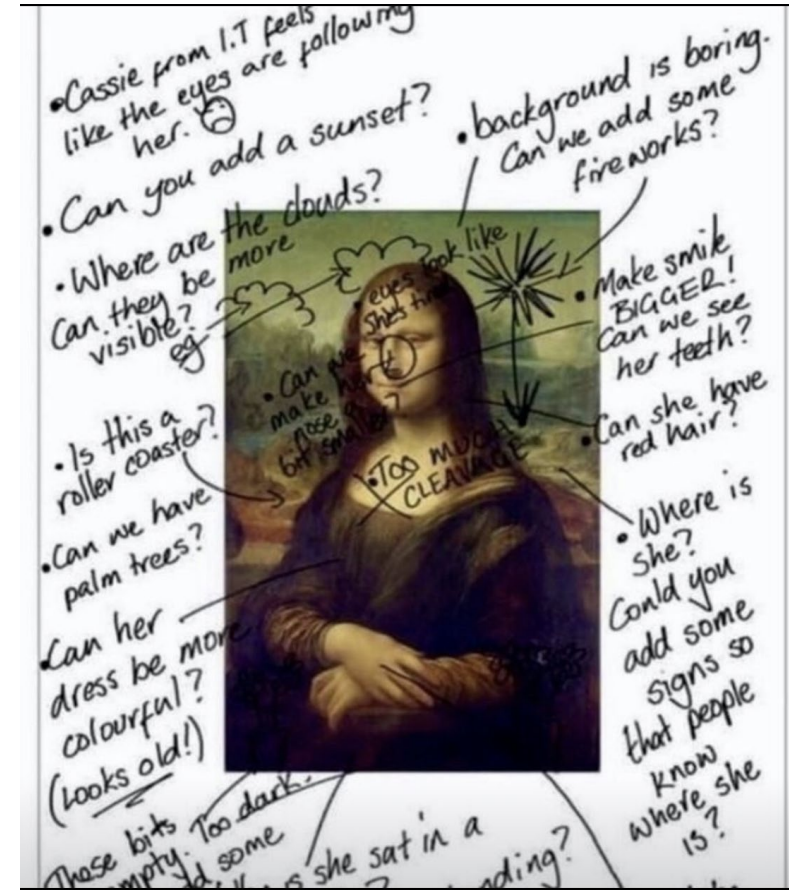 •Cassie from I.T feels
like the eyes are following
her.
• Can you add a sunset?
• Where are the clouds?
Can they be more
visible?
eg
• background is boring.
Can we add some
fireworks?
• eyes look like
she's tired
• Make smile
BIGGER!
Can we see
her teeth?
• Can we
make her
nose a
bit smaller?
• Can she have
red hair?
• Is this a
roller coaster?
•TOO MUCH
CLEAVAGE
•Can we have
palm trees?
• Where is
she?
Could you
add some
signs so
that people
know
where she
is?
•Can her
dress be more
colourful?
(Looks old!)
These bits
Too dark.
some
she sat in a